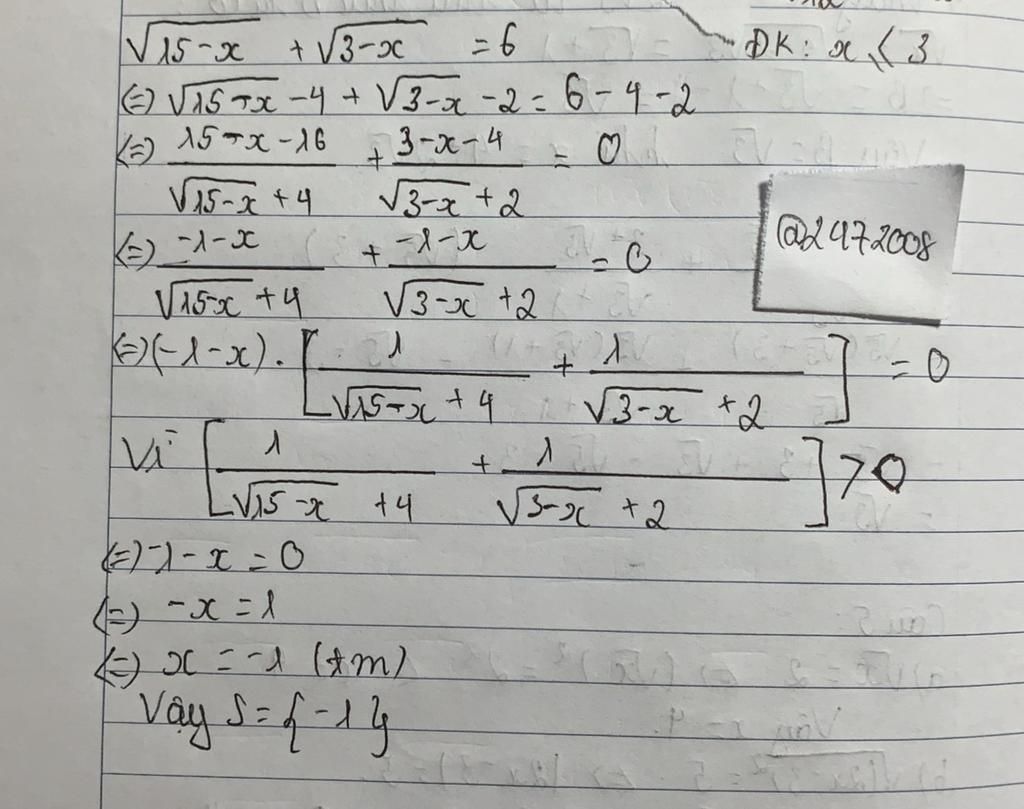 √15-x + √3-x = 6 ĐK: x ≤ 3
(=) √15-x - 4 + √3-x - 2 = 6 - 4 - 2
(=) (15-x-16)/(√15-x + 4) + (3-x-4)/(√3-x + 2) = 0
(=) (-1-x)/(√15-x + 4) + (-1-x)/(√3-x + 2) = 0
@2472008
(=) (-1-x) . [1/(√15-x + 4) + 1/(√3-x + 2)] = 0
Vì [1/(√15-x + 4) + 1/(√3-x + 2)] > 0
(=) -1-x = 0
(=) -x = 1
(=) x = -1 (tm)
Vậy S = {-1}